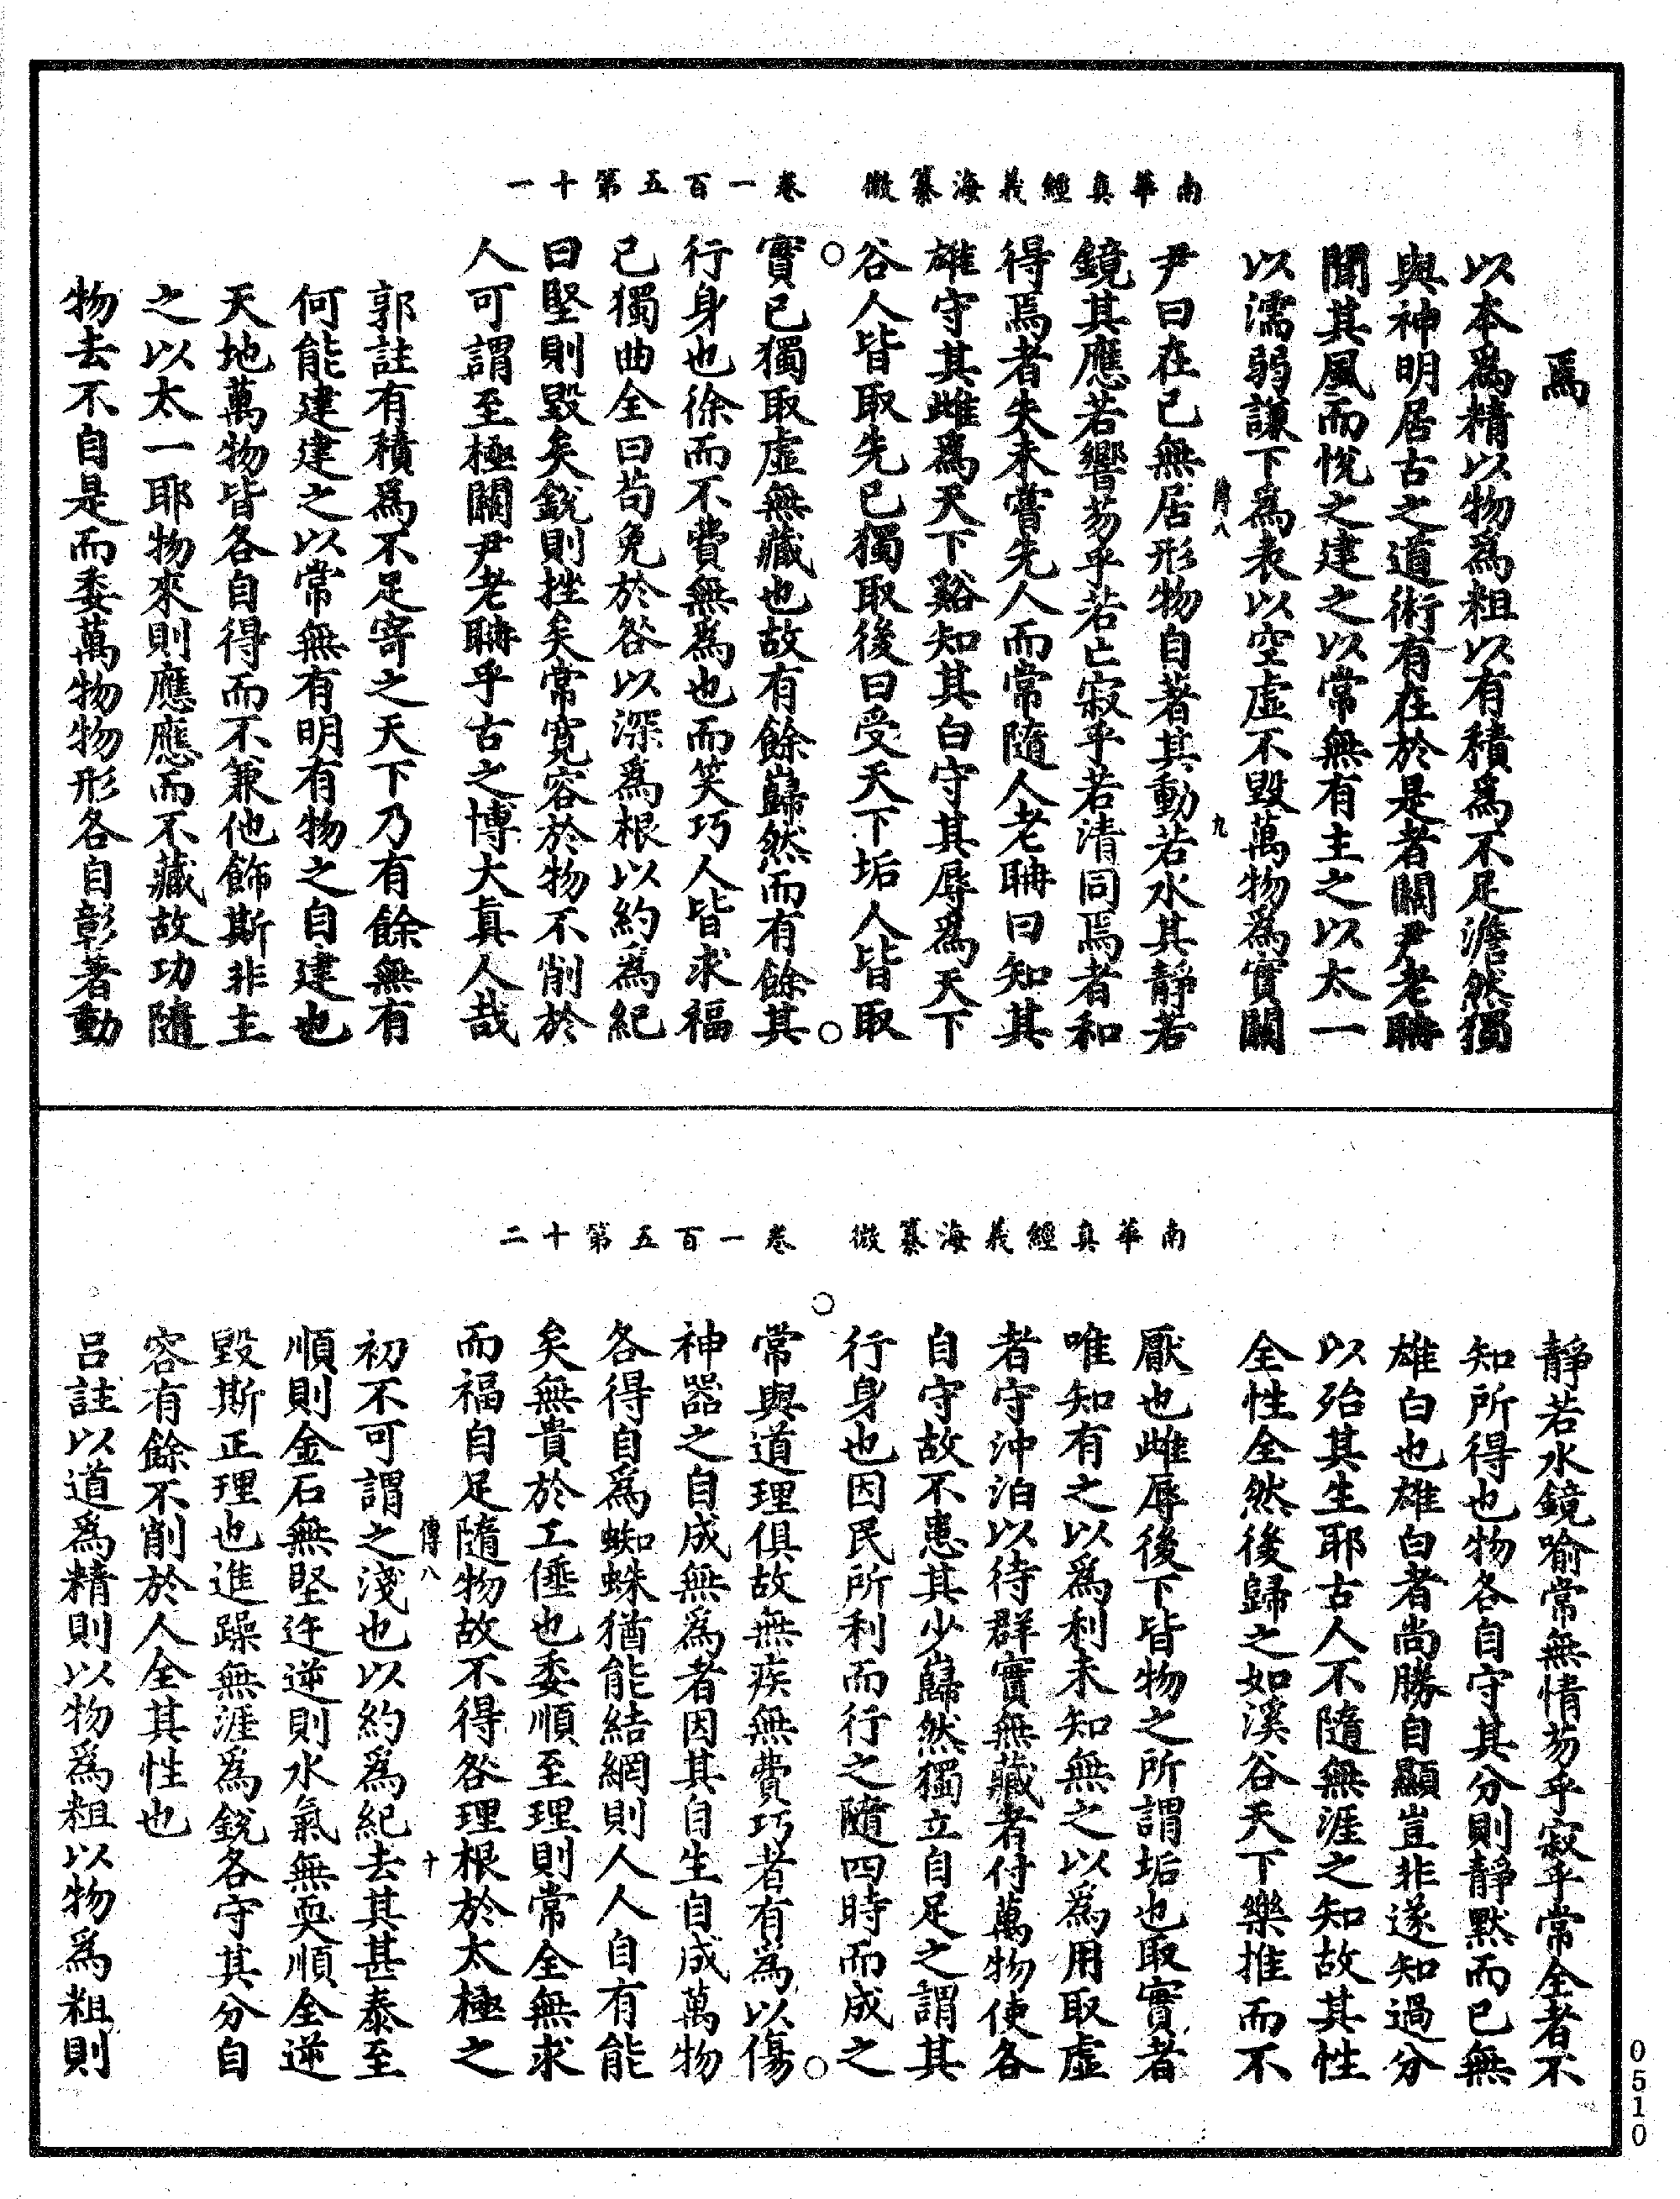 南華真經義海纂微　卷一百五第十一
焉
以本為精以物為粗以有積為不足澹然獨
與神明居古之道術有在於是者關尹老聃
聞其風而悅之建之以常無有主之以太一
以濡弱謙下為表以空虛不毀萬物為實關
傳八　九
尹曰在已無居形物自著其動若水其靜若
鏡其應若響芴乎若亡寂乎若清同焉者和
得焉者失未嘗先人而常隨人老聃曰知其
雄守其雌為天下谿知其白守其辱為天下
谷人皆取先已獨取後曰受天下垢人皆取
實已獨取虛無藏也故有餘巋然而有餘其
行身也徐而不費無為也而笑巧人皆求福
已獨曲全曰苟免於咎以深為根以約為紀
曰堅則毀矣銳則挫矣常寬容於物不削於
人可謂至極關尹老聃乎古之博大真人哉
郭註有積為不足寄之天下乃有餘無有
何能建建之以常無有明有物之自建也
天地萬物皆各自得而不兼他飾斯非主
之以太一耶物來則應應而不藏故功隨
物去不自是而委萬物物形各自彰著動
南華真經義海纂微　卷一百五第十二
靜若水鏡喻常無情芴乎寂乎常全者不
知所得也物各自守其分則靜默而已無
雄白也雄白者尚勝自顯豈非逐知過分
以殆其生耶古人不隨無涯之知故其性
全性全然後歸之如溪谷天下樂推而不
厭也雌辱後下皆物之所謂垢也取實者
唯知有之以為利未知無之以為用取虛
者守沖泊以待群實無藏者付萬物使各
自守故不患其少巋然獨立自足之謂其
行身也因民所利而行之隨四時而成之
常與道理俱故無疾無費巧者有為以傷
神器之自成無為者因其自生自成萬物
各得自為蜘蛛猶能結網則人人自有能
矣無貴於工倕也委順至理則常全無求
而福自足隨物故不得咎理根於太極之
傳八　十
初不可謂之淺也以約為紀去其甚泰至
順則金石無堅迕逆則水氣無耎順全逆
毀斯正理也進躁無涯為銳各守其分自
容有餘不削於人全其性也
呂註以道為精則以物為粗以物為粗則
0510